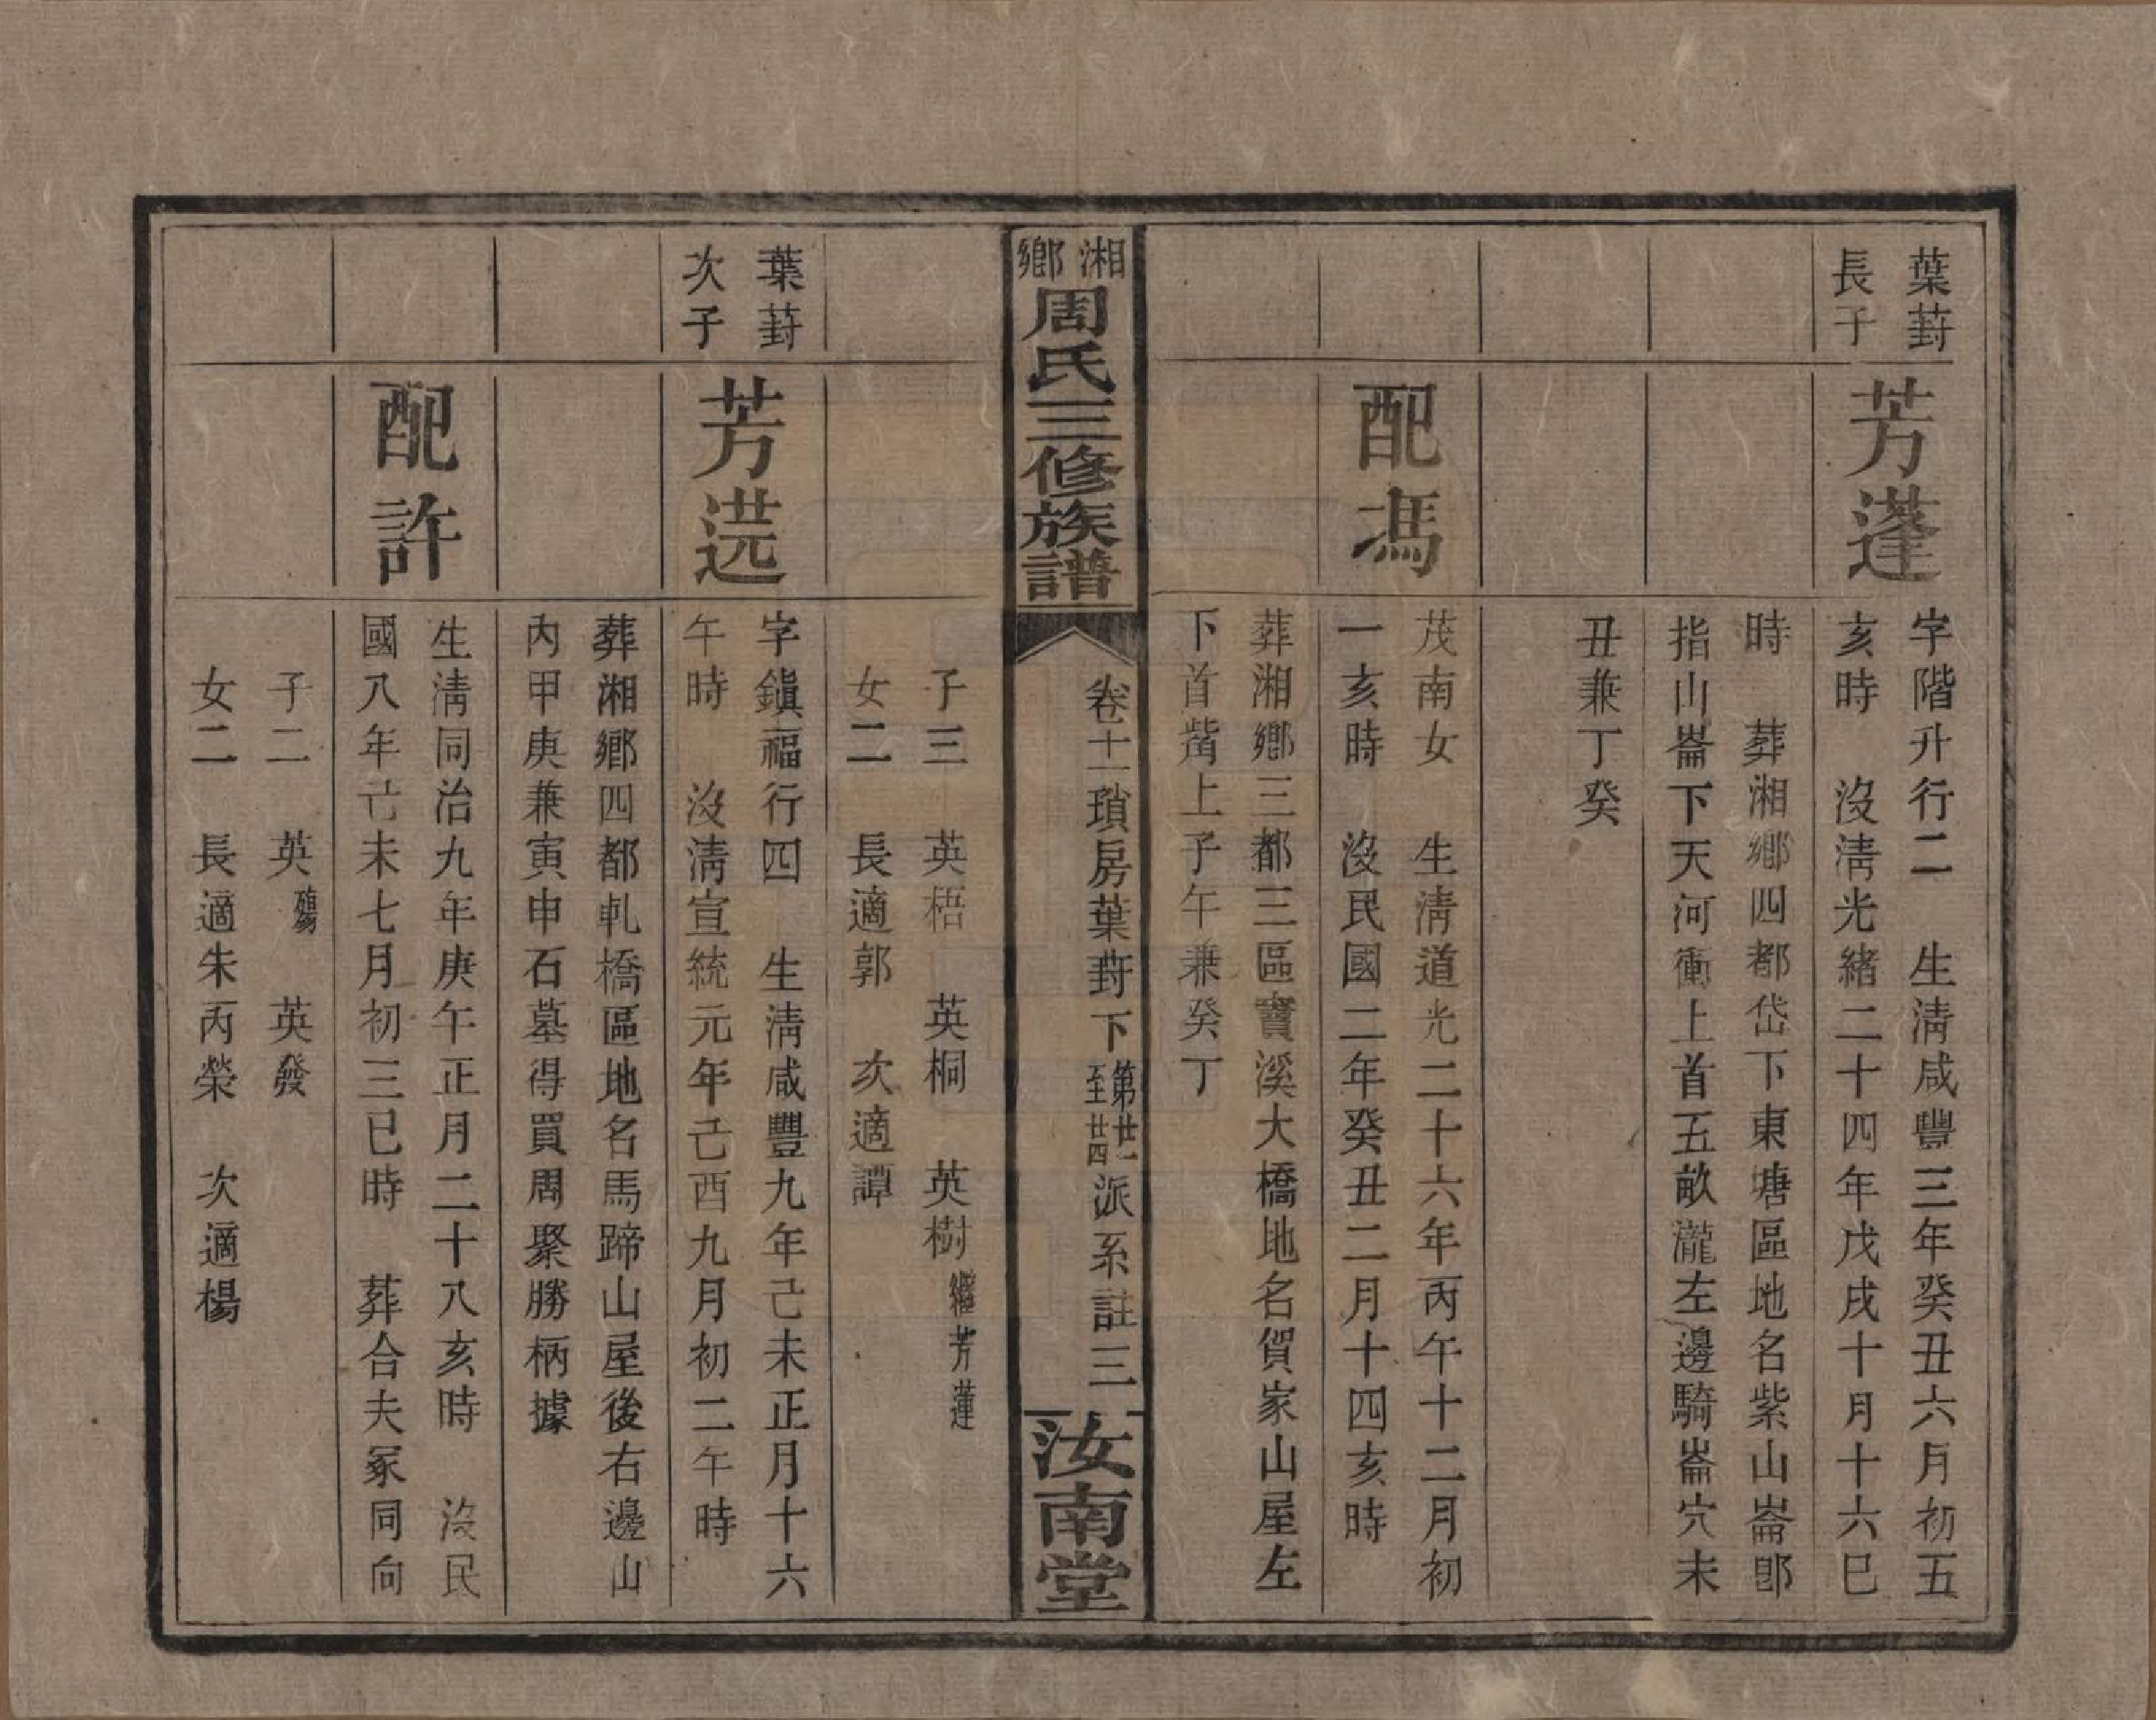 葉葑
長子
芳蓬
字階升行二　生淸咸豐三年癸丑六月初五
亥時　沒淸光緒二十四年戊戌十月十六巳
時　葬湘鄉四都岱下東塘區地名紫山崙卽
指山崙下天河衝上首五畝瀧左邊騎崙穴未
丑兼丁癸
配馮
茂南女　生淸道光二十六年丙午十二月初
一亥時　沒民國二年癸丑二月十四亥時
葬湘鄉三都三區寶溪大橋地名賀家山屋左
下首嘴上子午兼癸丁
湘鄉
周氏三修族譜
卷十一瑣房葉葑下第廿一至廿四派系註　三
汝南堂
子三　英梧　英桐　英樹繼芳蓮
女二　長適郭　次適譚
葉葑
次子
芳选
字鎭福行四　生淸咸豐九年己未正月十六
午時　沒淸宣統元年己酉九月初二午時
葬湘鄉四都軋橋區地名馬蹄山屋後右邊山
內甲庚兼寅申石墓得買周聚勝柄據
配許
生淸同治九年庚午正月二十八亥時　沒民
國八年己未七月初三巳時　葬合夫冢同向
子二　英殤　英發
女二　長適朱丙榮　次適楊